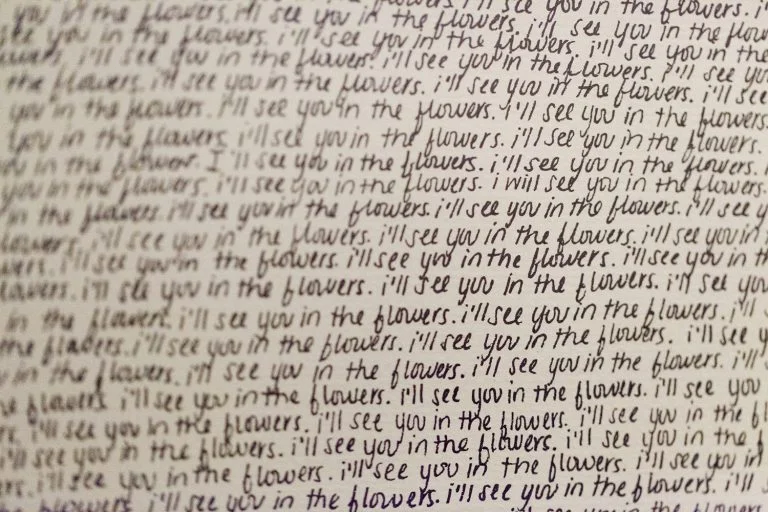 you in the flowers. i'll see you in the flowers. i'll see you in the flowers.
see you in the flowers. i'll see you in the flowers. i'll see you in the
flowers. i'll see you in the flowers. i'll see you in the flowers. i'll see you
the flowers. i'll see you in the flowers. i'll see you in the flowers. i'll see
you in the flowers. i'll see you in the flowers. i'll see you in the flowers.
you in the flowers i'll see you in the flowers. i'll see you in the flowers.
you in the flowers. I'll see you in the flowers. i'll see you in the flowers.
you in the flowers. i'll see you in the flowers. i will see you in the flowers.
in the flowers. i'll see you in the flowers. i'll see you in the flowers. i'll see
flowers. i'll see you in the flowers. i'll see you in the flowers. i'll see you in
i'll see you in the flowers. i'll see you in the flowers. i'll see you in
flowers. i'll see you in the flowers. i'll see you in the flowers. i'll see you
in the flowers. i'll see you in the flowers. i'll see you in the flowers. i'll
the flowers. i'll see you in the flowers. i'll see you in the flowers. i'll see
in the flowers. i'll see you in the flowers. i'll see you in the flowers. i'll
flowers i'll see you in the flowers. i'll see you in the flowers. i'll see you
i'll see you in the flowers. i'll see you in the flowers. i'll see you in the
i'll see you in the flowers. i'll see you in the flowers. i'll see you in the
i'll see you in the flowers. i'll see you in the flowers. i'll see you in
i'll see you in the flowers. i'll see you in the flowers. i'll
flowers. i'll see you in the flowers. i'll see you in the flowers. i'll see